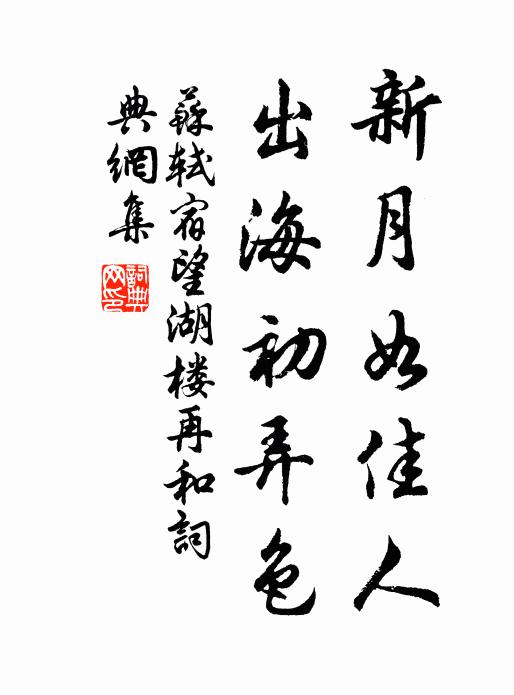 新月如佳人
出海初弄色
蘇軾宿望湖樓再和詞
典網集
詞典网印